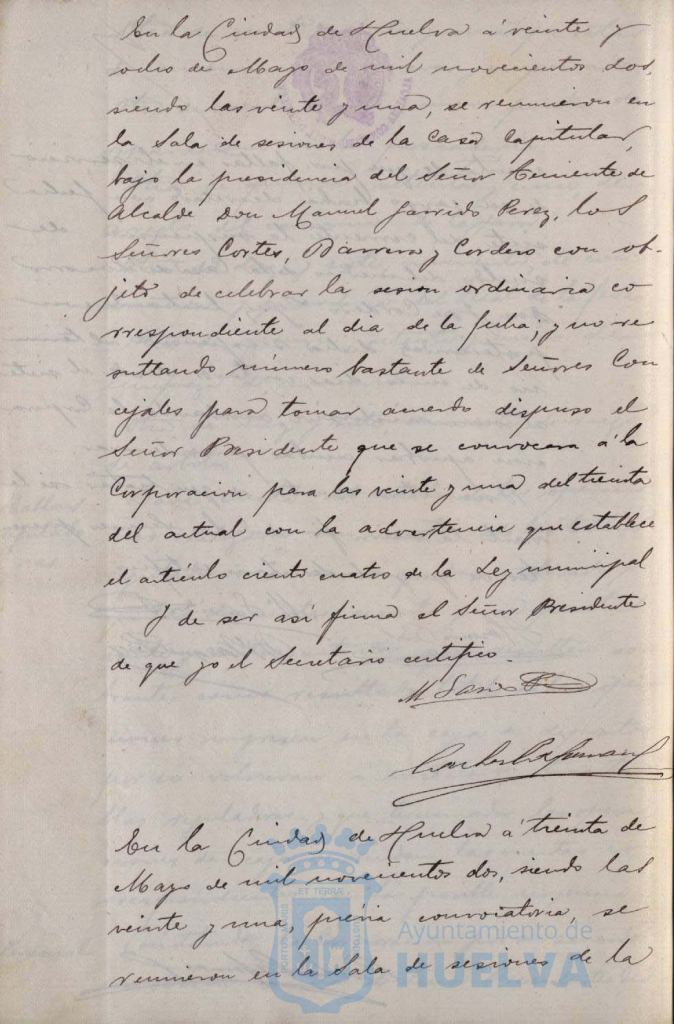 En la Ciudad de Huelva á veinte y
ocho de Mayo de mil novecientos dos,
siendo las veinte y una, se reunieron en
la Sala de sesiones de la Casa Capitular,
bajo la presidencia del Señor Teniente de
Alcalde Don Manuel Garrido Perez, los
Señores Cortes, Barrera y Cordero con ob-
jeto de celebrar la sesion ordinaria co
rrespondiente al dia de la fecha; y no re
sultando número bastante de Señores Con
cejales para tomar acuerdo dispuso el
Señor Presidente que se convocara á la
Corporacion para las veinte y una del treinta
del actual con la advertencia que establece
el artículo ciento cuatro de la Ley municipal
Y de ser así firma el Señor Presidente
de que yo el Secretario certifico.
En la Ciudad de Huelva á treinta de
Mayo de mil novecientos dos, siendo las
veinte y una, prévia convocatoria, se
reunieron en la Sala de sesiones de la
Ayuntamiento de
HUELVA